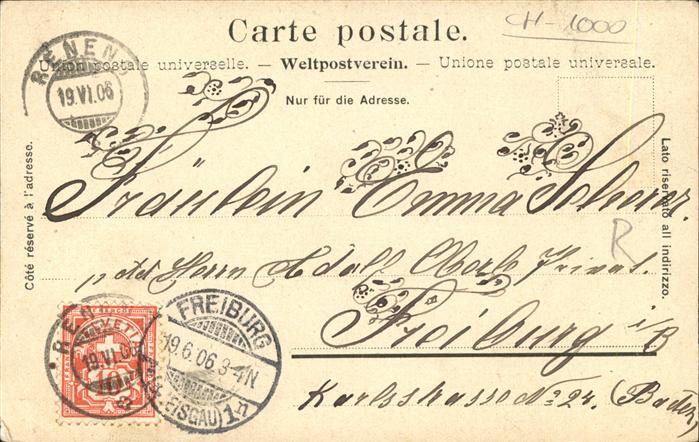 CH-1000
Carte postale.
Union postale universelle. — Weltpostverein. — Unione postale universale.
RENENS
19.VI.06
Nur für die Adresse.
Côté réservé à l'adresse.
Lato riservato all indirizzo.
Fräulein Emma Scherer.
R
Herrn Adolf Oberle Privat.
Freiburg i/B
Karlsstrasse No 24. (Baden)
HELVETIA
FRANCO
RENENS
19.VI.06
10
FREIBURG
19.6.06 3-4N
(BREISGAU) 1n